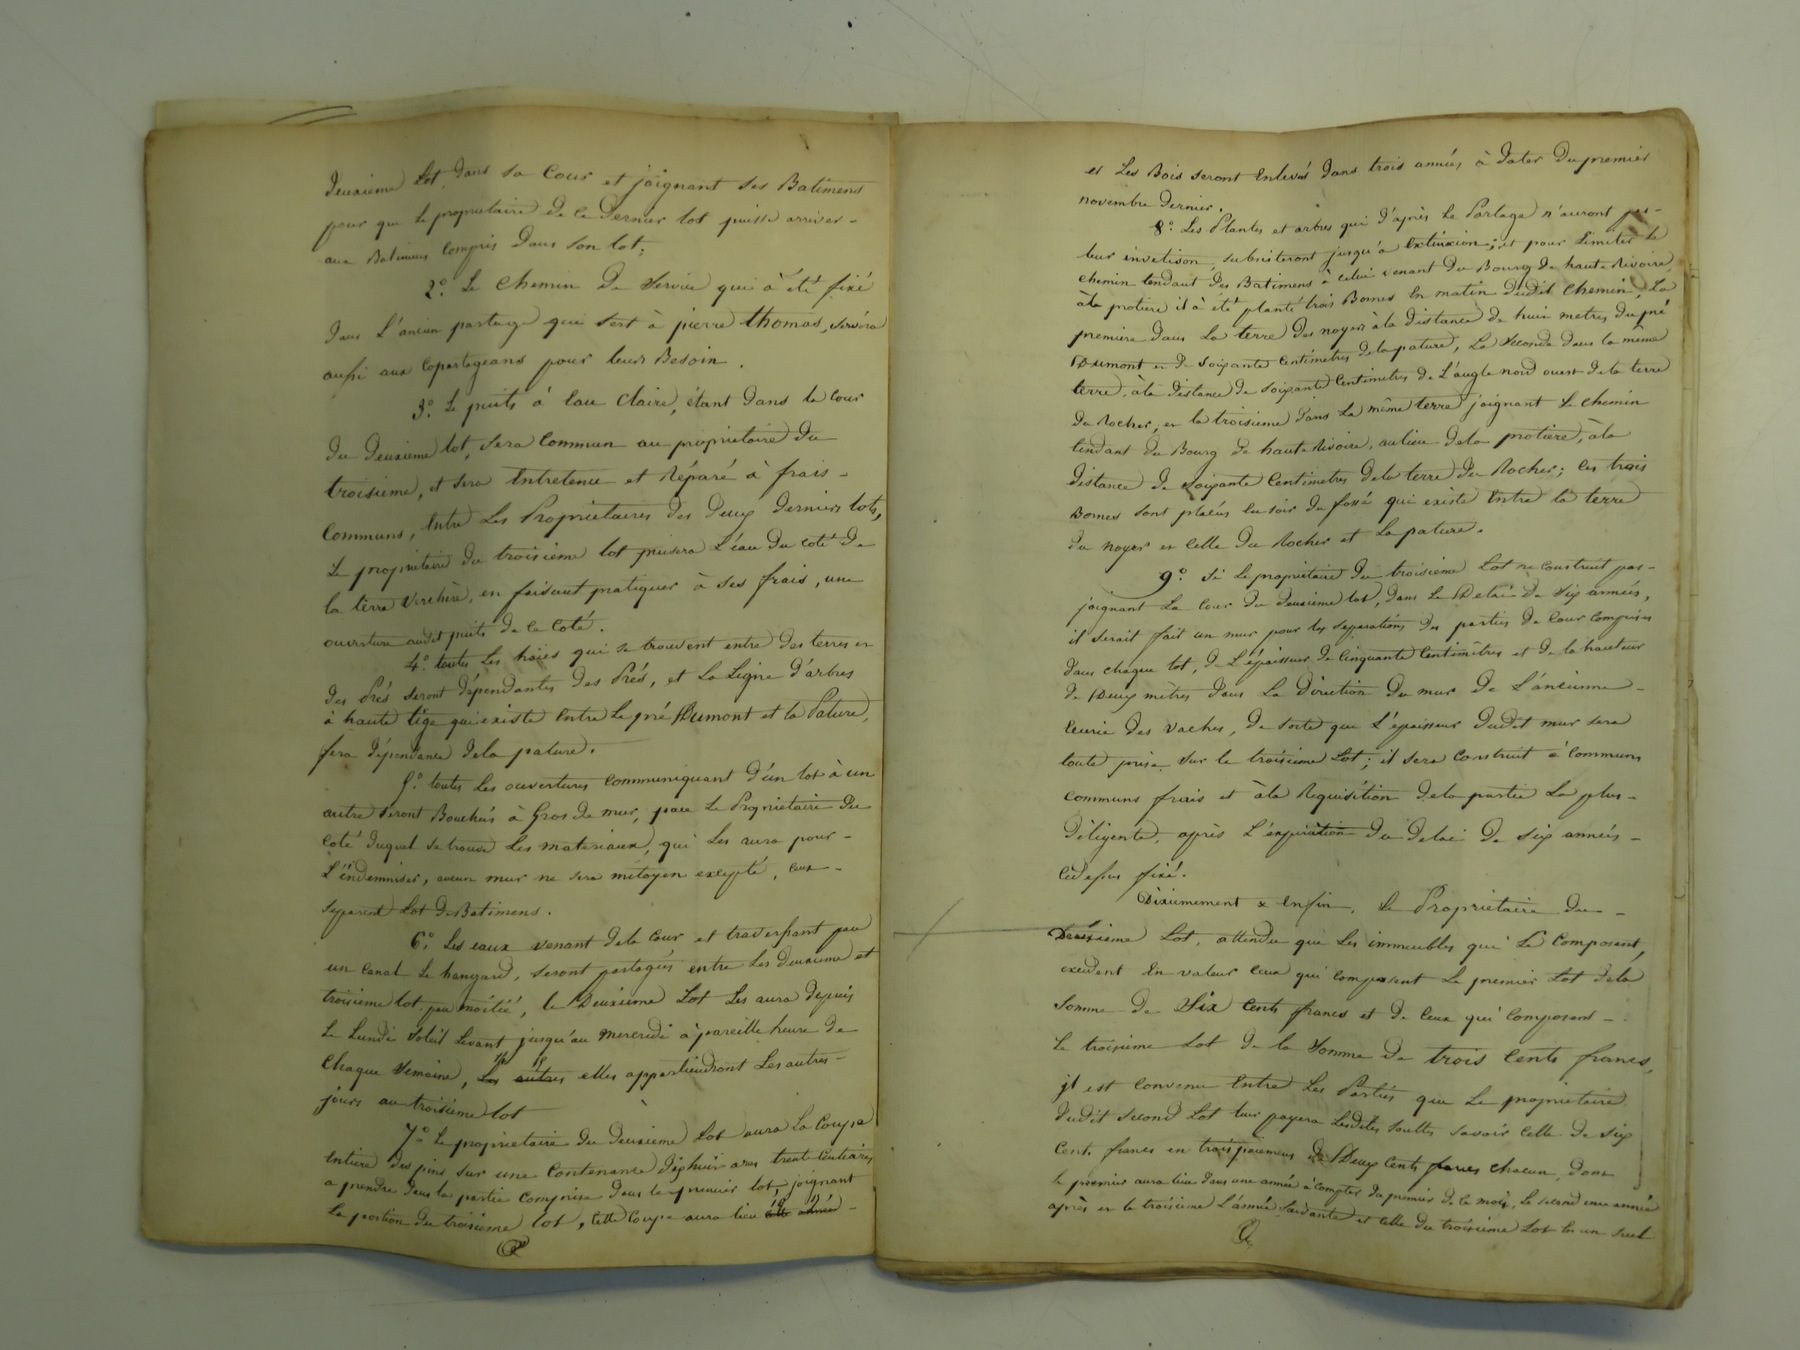 deuxième Lot dans sa Cour et joignant ses Batimens
pour que le propriétaire de ce Dernier lot puisse arriver -
aux Batimens compris dans son lot;
2.° Le chemin de Service qui à été fixé
dans L'ancien partage qui sert à pierre thomas, servira
aussi aux copartageans pour leurs Besoin.
3.° Le puits à Eau Claire, étant dans la cour
du deuxième lot, sera Commun au propriétaire du
troisième, et sera Entretenu et Réparé à frais -
Communs, Entre Les Propriétaires des deux derniers lots,
Le propriétaire du troisième lot puisera L'éau du coté de
la terre Verchère, en faisant pratiquer à ses frais, une
ouverture audit puits de ce coté.
4.° toutes Les haies qui se trouvent entre des terres et
des Prés seront dépendantes des Prés, et La Ligne d'arbres
à haute tige qui existe Entre Le pré Dumont et la Pature,
sera dépendance dela pature.
5.° toutes Les ouvertures communiquant d'un lot à un
autre seront Bouchés à Gros de mur, par Le Propriétaire du
Coté duquel se trouve Les materiaux, qui Les aura pour -
L'indemniser, aucun mur ne sera mitoyen excepté, ceux -
séparent Lot de Batimens.
6.° Les eaux venant dela Cour et traversant par
un Canal Le hangard, seront partagées entre Les deuxieme et
troisieme lot par moitié, le Deuxième Lot Les aura depuis
Le Lundi Soleil Levant jusqu'au mercredi à pareille heure de
Chaque Semaine, Les autres elles appartiendront Les autres -
jours au troisième lot
7.° Le propriétaire du Deuxième Lot aura La Coupe
Entière des pins sur une Contenance dixhuit ares trente Centiares
a prendre dans la partie Comprise dans le premier lot, joignant
La portion du troisième lot, Cette Coupe aura lieu cette année -
et Les Bois seront Enlevés dans trois années à Dater Du premier
novembre dernier.
8.° Les Plantes et arbres qui d'après Le Partage n'auront pas -
leur invetison, subsisteront jusqu'à Extinxion; et pour Limiter Le
chemin tendant des Batimens à celui venant du Bourg de haute Rivoire,
à la protiere il à été planté trois Bornes En matin dudit Chemin, La
première dans La terre des noyers à la distance de huit metres du pré
Dumont et de Soixante Centimètres dela pature, La Seconde dans la même
terre, à la distance de Soixante Centimetres de L'angle nord ouest dela terre
du Rocher, et la troisieme dans La même terre joignant Le chemin
tendant du Bourg de haute Rivoire, au lieu dela protiere, à la
distance de Soixante Centimetres dela terre du Rocher; Ces trois
Bornes sont placées au soir du fossé qui existe Entre la terre
du noyer et Celle du Rocher et La pature.
9.° Si Le propriétaire du troisième Lot ne Construit pas -
joignant La Cour du deuxième lot, dans Le Delai de Six années,
il serait fait un mur pour les séparations des parties de Cour Comprises
dans chaque lot, de L'épaisseur de Cinquante Centimètres et de la hauteur
de Deux mètres dans La direction du mur de L'ancienne -
Ecurie des Vaches, de sorte que L'épaisseur dudit mur sera
toute prise sur le troisième Lot; il sera Construit à Communs
communs frais et à la Requisition dela partie La plus -
diligente, après L'expiration du delai de six années -
cidessus fixé.
Dixiemement & Enfin, Le Propriétaire du -
Deuxième Lot, attendu que Les immeubles qui Le Composent,
excedent En valeur Ceux qui composent Le premier Lot dela
Somme de Six Cents francs et de Ceux qui Composent -
Le troisième Lot de la Somme de trois Cents francs,
il est Convenu Entre Les Parties que Le propriétaire
dudit second Lot leur payera Lesdites soultes savoir Celle de six
Cents francs en trois paiemens de Deux Cents francs chacun, dont
le premier aura lieu dans une année à compter du premier de ce mois, Le second une année
après et le troisième L'année suivante et Celle du troisième Lot En un seul